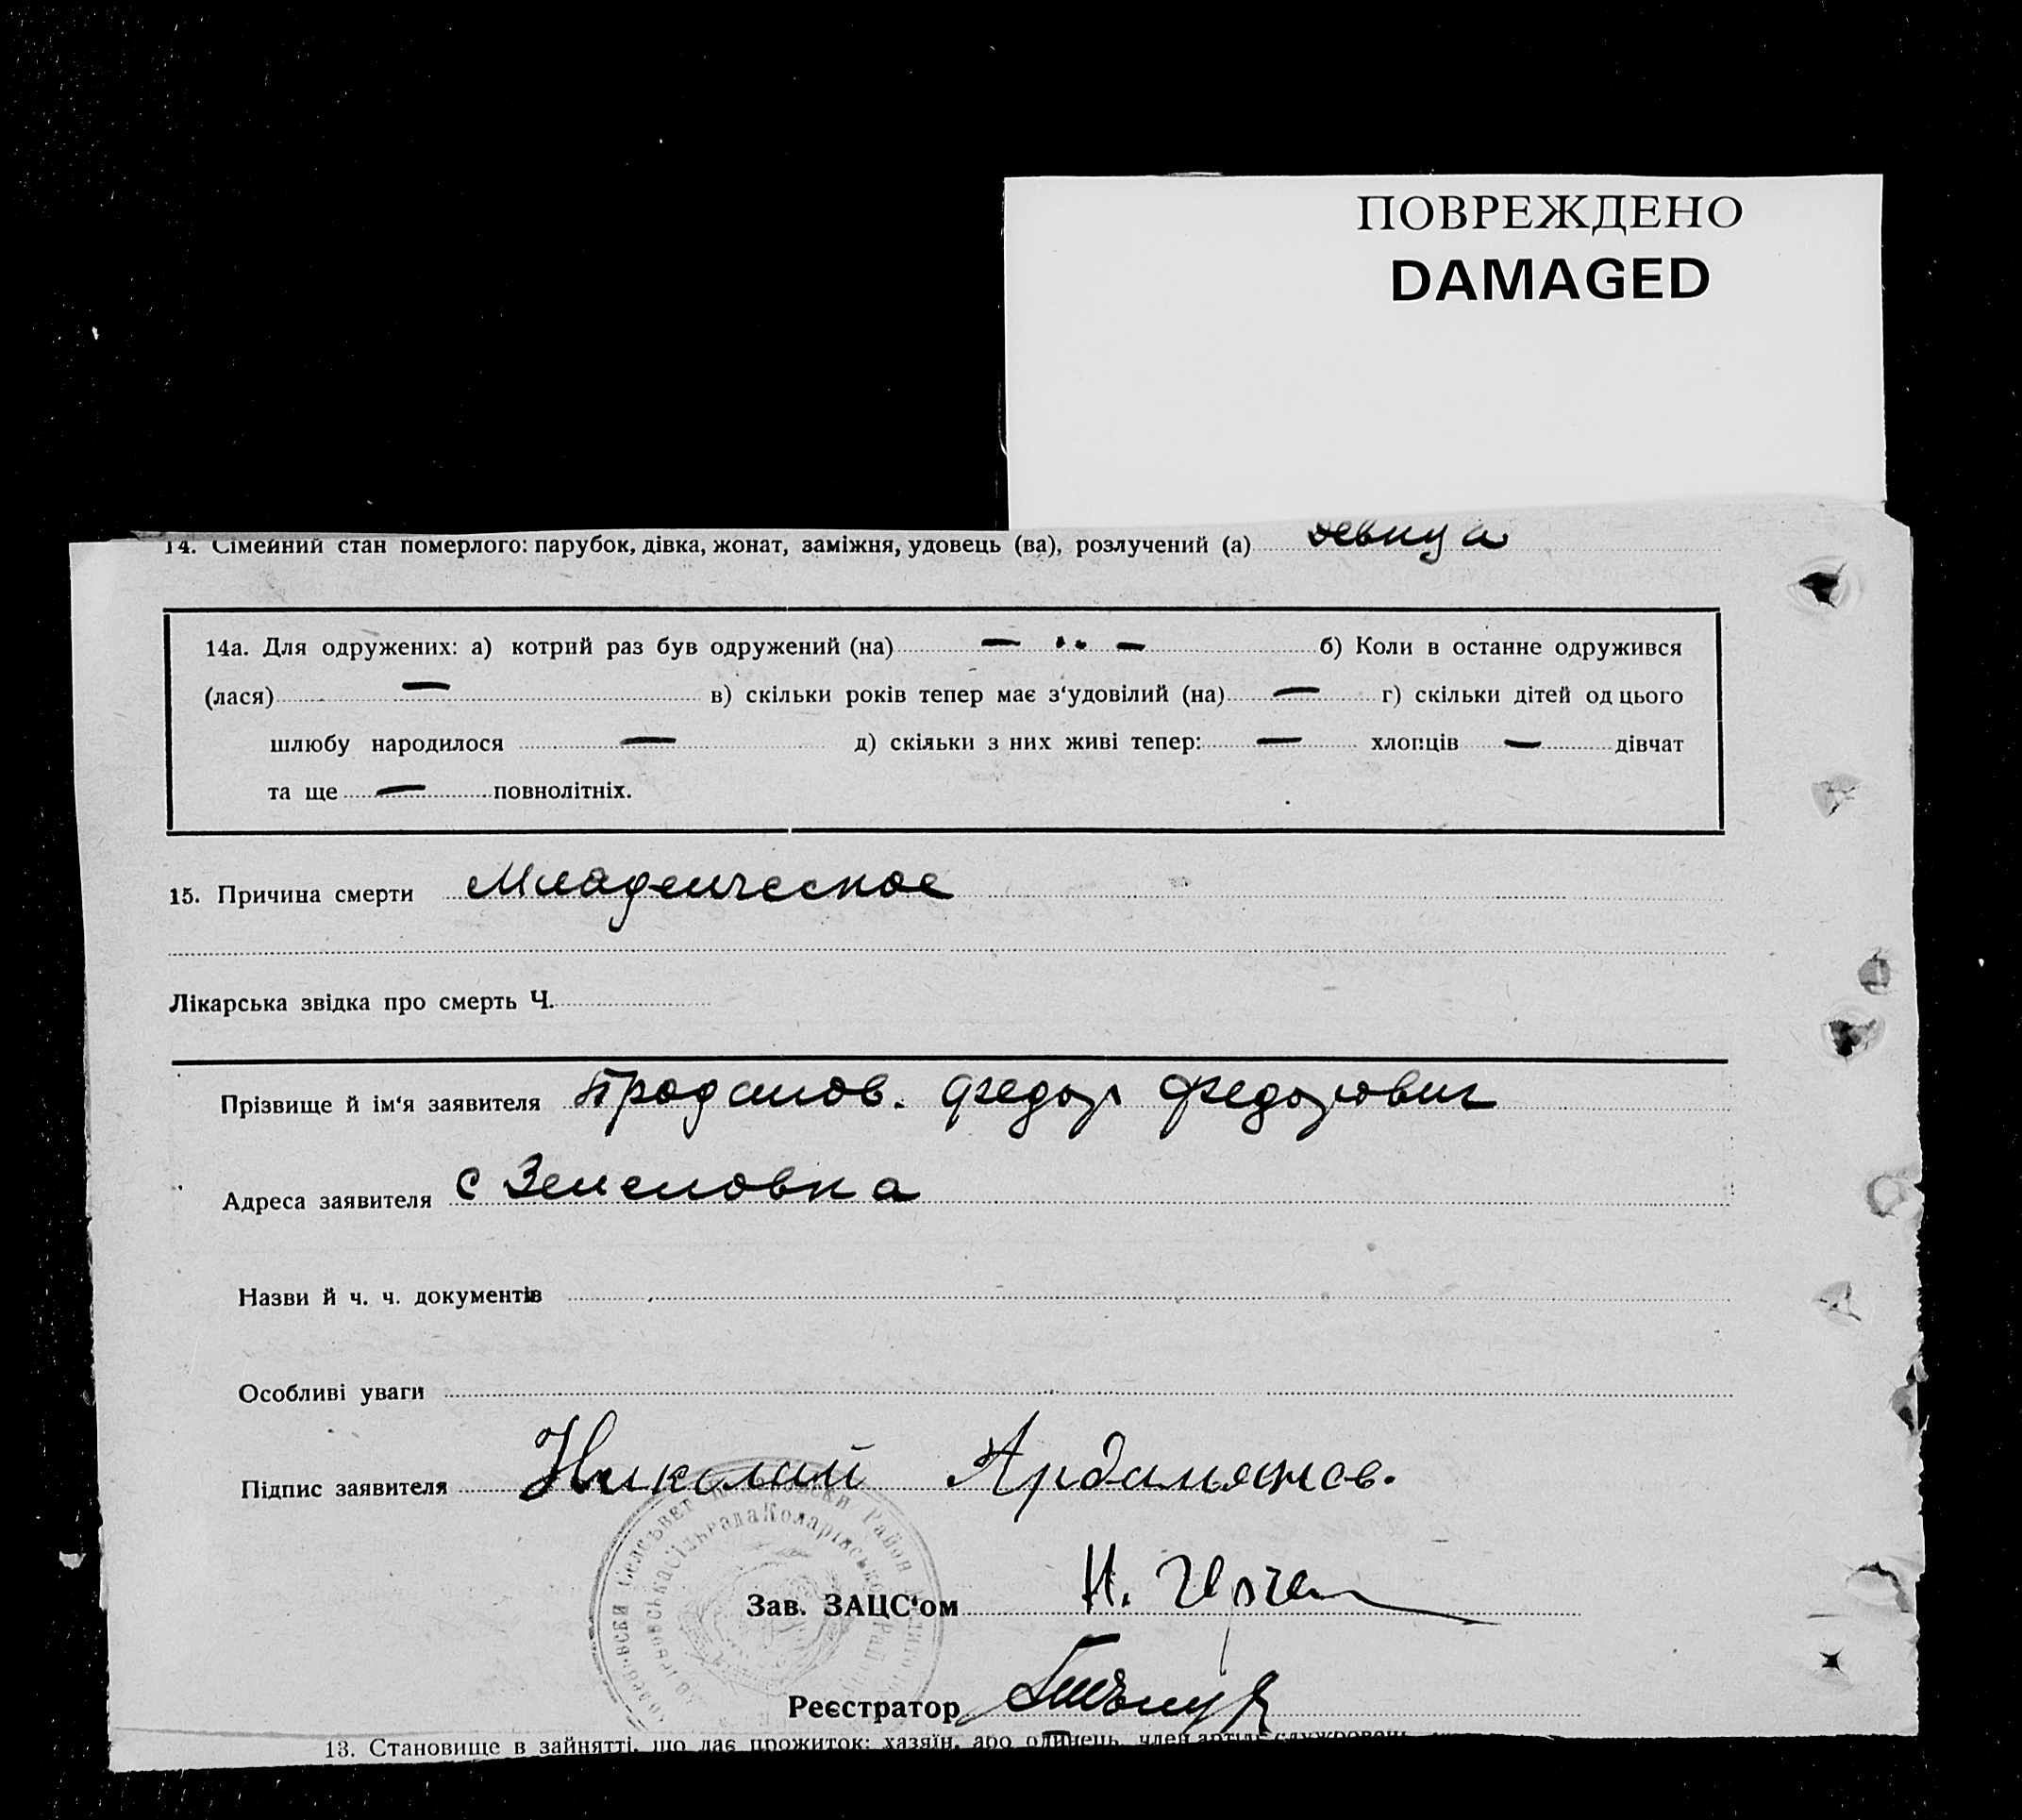 ПОВРЕЖДЕНО
DAMAGED
14. Сімейний стан померлого: парубок, дівка, жонат, заміжня, удовець (ва), розлучений (а) девица
14а. Для одружених: а) котрий раз був одружений (на) — „ — б) Коли в останне одружився
(лася) — в) скільки років тепер має з'удовілий (на) — г) скільки дітей од цього
шлюбу народилося — д) скільки з них живі тепер: — хлопців — дівчат
та ще — повнолітніх.
15. Причина смерти Младенческое
Лікарська звідка про смерть Ч.
Прізвище й ім'я заявителя Проданов. Федор Федорович
Адреса заявителя с Зеленовка
Назви й ч. ч. документів
Особливі уваги
Підпис заявителя Николай
Зав. ЗАЦС'ом Н.
Реєстратор
13. Становище в зайнятті, що дає прожиток: хазяїн, або одинець, член артілі